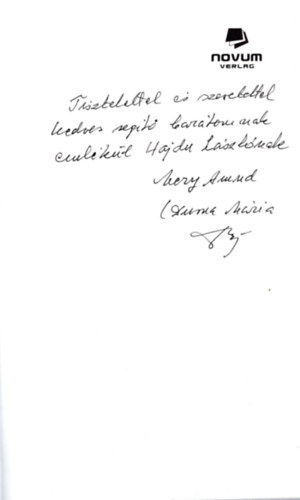 novum
VERLAG
Tisztelettel és szeretettel
kedves segítő barátomnak
emlékül Hajdu Lászlónak
Mery
Mária